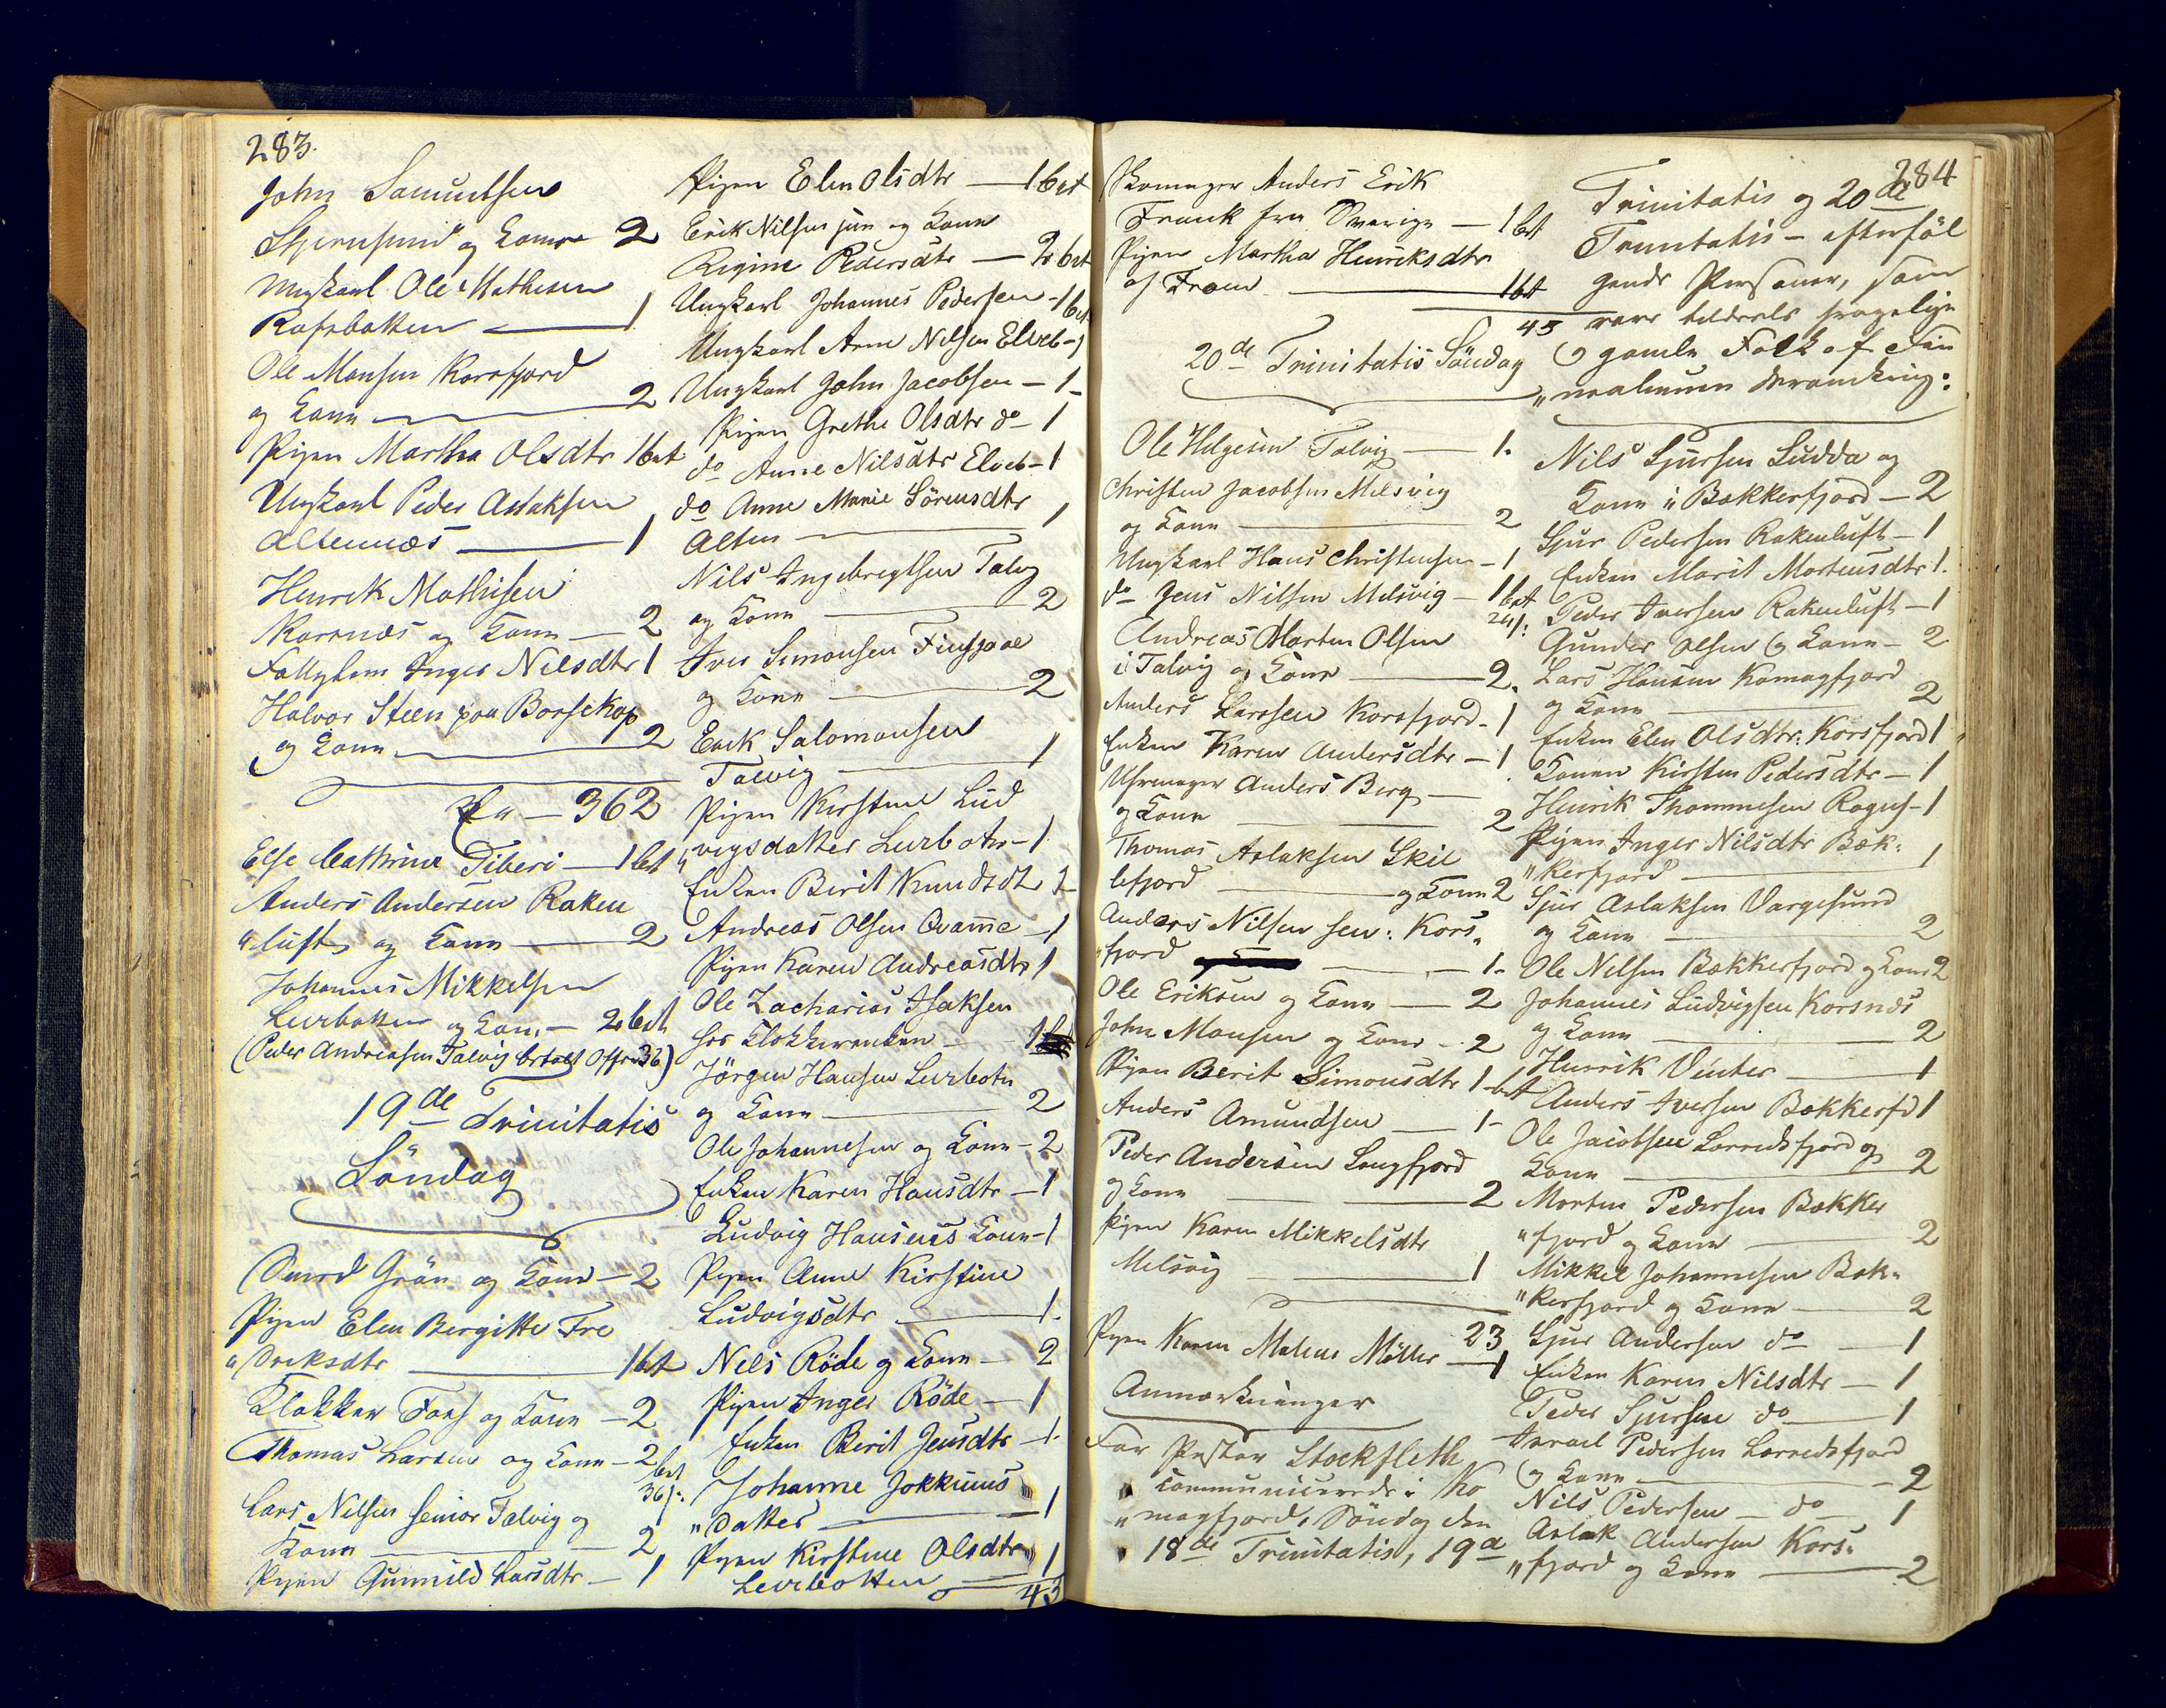 283.
John Samuelsen
Stjernsund og Kone 2
Ungkarl Ole Mathisen
Rafsbotten 1
Ole Monsen Korsfjord
og Kone 2
Pigen Martha Olsdtr 1 bet
Ungkarl Peder Aslaksen
Altennæs 1
Henrik Mathisen
Korsnæs og Kone 2
Fattiglem Inger Nilsdtr 1
Halvor Steen paa Bossekop
og Kone 2
362
Else Cathrine Tiberi 1 bet
Anders Andersen Raken
"luft og Kone 2
Johannes Mikkelsen
Leerbotten og Kone 2 bet
(Peder Andreasen Talvig betalt Offer 36)
19de Trinitatis
Söndag
Smed Grön og Kone 2
Pigen Elen Bergitte Fre
"driksdtr 1 bet
Klokker Fors og Kone 2
Thomas Larsen og Kone 2
bet
36 s:
Lars Nilsen senior Talvig og
Kone 2
Pigen Gunnild Larsdtr 1
Pigen Elen Olsdtr 1 bet
Erik Nilsen jun og Kone
Regine Pedersdtr 2 bet
Ungkarl Johannes Pedersen 1 bet
Ungkarl Arne Nilsen Elveb 1
Ungkarl John Jacobsen 1
Pigen Grethe Olsdtr do 1
do Anne Nilsdtr Elveb 1
do Anne Marie Sörensdtr
Alten 1
Nils Ingebregtsen Talvig
og Kone 2
Iver Simonsen
og Kone 2
Erik Salomonsen
Talvig 1
Pigen Kirstine Lud
"vigsdatter Leerbotn 1
Enken Berit Knudsdtr 1
Andreas Olsen Qvamme 1
Pigen Karen Andreasdtr 1
Ole Zacharias Isaksen
hos Klokkerenken 1
Jörgen Hansen Leerbotn
og Kone 2
Ole Johannesen og Kone 2
Enken Karen Hansdtr 1
Ludvig Hansens Kone 1
Pigen Anne Kirstine
Ludvigsdtr 1
Nils Röde og Kone 2
Pigen Inger Röde 1
Enken Berit Jensdtr 1
Johanne Jokkums
"datter 1
Pigen Kirstine Olsdtr 1
Leerbotten
43
284
Skomager Anders Erik
Frank fra Sverige 1 bet
Pigen Martha Henriksdtr
af 1 bet
45
20de Trinitatis Söndag
Ole Helgesen Talvig 1
Christen Jacobsen Melsvig
og Kone 2
Ungkarl Hans Christensen 1
do Jens Nilsen Melsvig 1 bet
24 s:
Andreas Morten Olsen
i Talvig og Kone 2
Anders Larssen Korsfjord 1
Enken Karen Andersdtr 1
Uhrmager Anders Berg
og Kone 2
Thomas Aslaksen Skil
lefjord og Kone 2
Anders Nilsen sen: Kors
"fjord 1
Ole Eriksen og Kone 2
John Monsen og Kone 2
Pigen Berit Simonsdtr 1 bet
Anders Amundsen 1
Peder Andersen Langfjord
og Kone 2
Pigen Karen Mikkelsdtr
Melsvig 1
23
Pigen Karen Malene Möller 1
Anmærkninger
For Pastor Stockfleth
communicerede i Ko
"magfjord, Söndag den
18de Trinitatis, 19de
Trinitatis og 20de
Trinitatis – efterföl
gende Personer, som
vare tildeels svagelige
og gamle Folk af Fin
"nealmuen
Nils Sjursen Ludda og
Kone i Bækkerfjord 2
Sjur Pedersen Rakenluft 1
Enken Marit Mortensdtr 1
Peder Iversen Rakenluft 1
Gunder Olsen og Kone 2
Lars Hansen Komagfjord
og Kone 2
Enken Elen Olsdtr: Korsfjord 1
Konen Kirsten Pedersdtr 1
Henrik Thommesen 1
Pigen Inger Nilsdtr Bæk
"kerfjord 1
Sjur Aslaksen Vargesund
og Kone 2
Ole Nilsen Bækkerfjord og Kone 2
Johannes Ludvigsen Korsnæs
og Kone 2
Henrik Vinter 1
Anders Iversen Bækkerfd 1
Ole Jacobsen Lerredsfjord og
Kone 2
Morten Pedersen Bækker
"fjord og Kone 2
Mikkel Johannesen Bæk
"kerfjord og Kone 2
Sjur Andersen do 1
Enken Karen Nilsdtr 1
Peder Sjursen do 1
Israel Pedersen Lerredsfjord
og Kone 2
Nils Pedersen do 1
Aslak Andersen Kors
"fjord og Kone 2